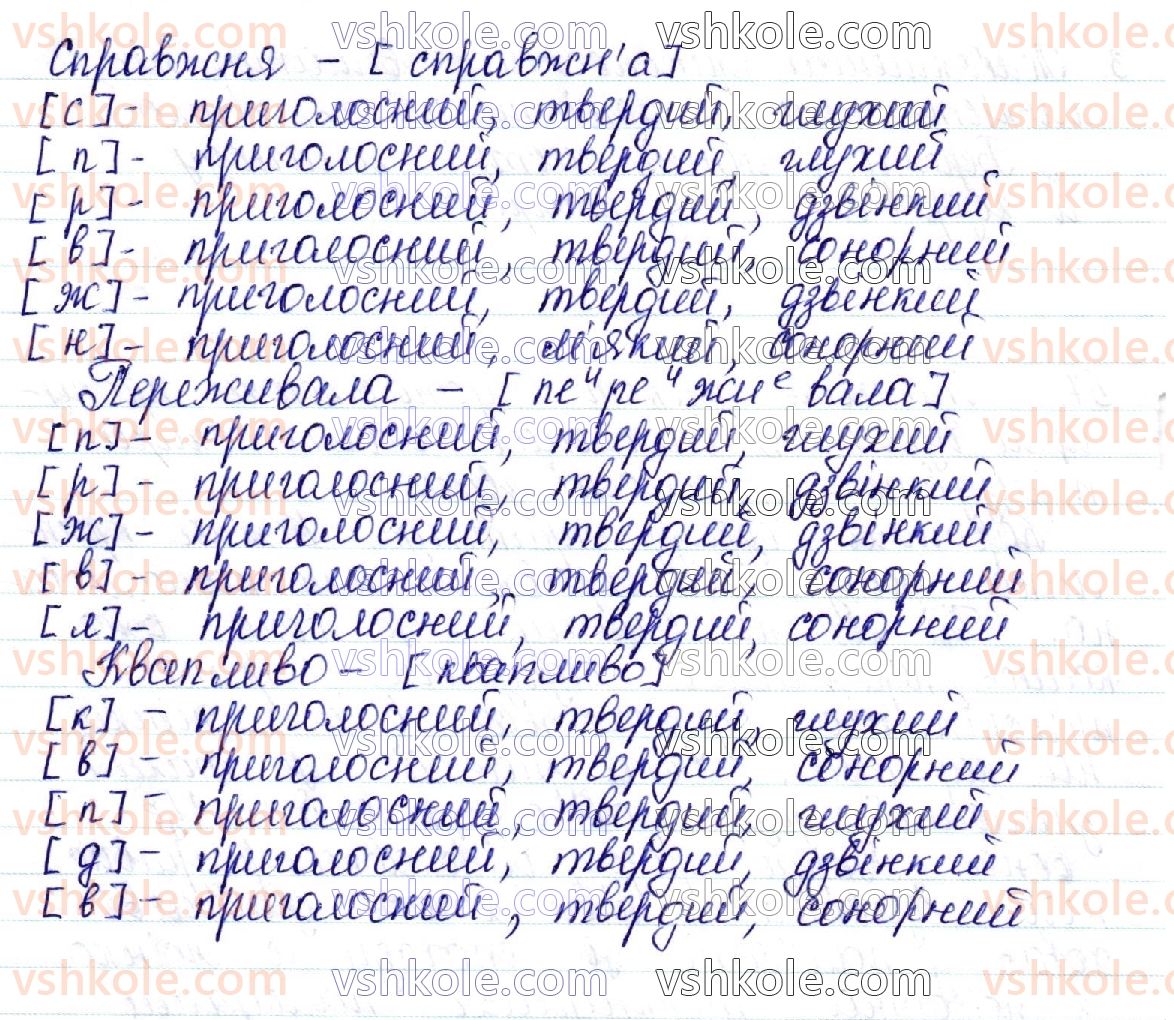 Справжня – [справжн'а]
[с] – приголосний, твердий, глухий
[п] – приголосний, твердий, глухий
[р] – приголосний, твердий, дзвінкий
[в] – приголосний, твердий, сонорний
[ж] – приголосний, твердий, дзвінкий
[н] – приголосний, м'який, сонорний
Переживала – [пеирeижиевала]
[п] – приголосний, твердий, глухий
[р] – приголосний, твердий, дзвінкий
[ж] – приголосний, твердий, дзвінкий
[в] – приголосний, твердий, сонорний
[л] – приголосний, твердий, сонорний
Квапливо – [квапливо]
[к] – приголосний, твердий, глухий
[в] – приголосний, твердий, сонорний
[п] – приголосний, твердий, глухий
[д] – приголосний, твердий, дзвінкий
[в] – приголосний, твердий, сонорний
vshkole.com vshkole.com vshkole.com vshkole.com